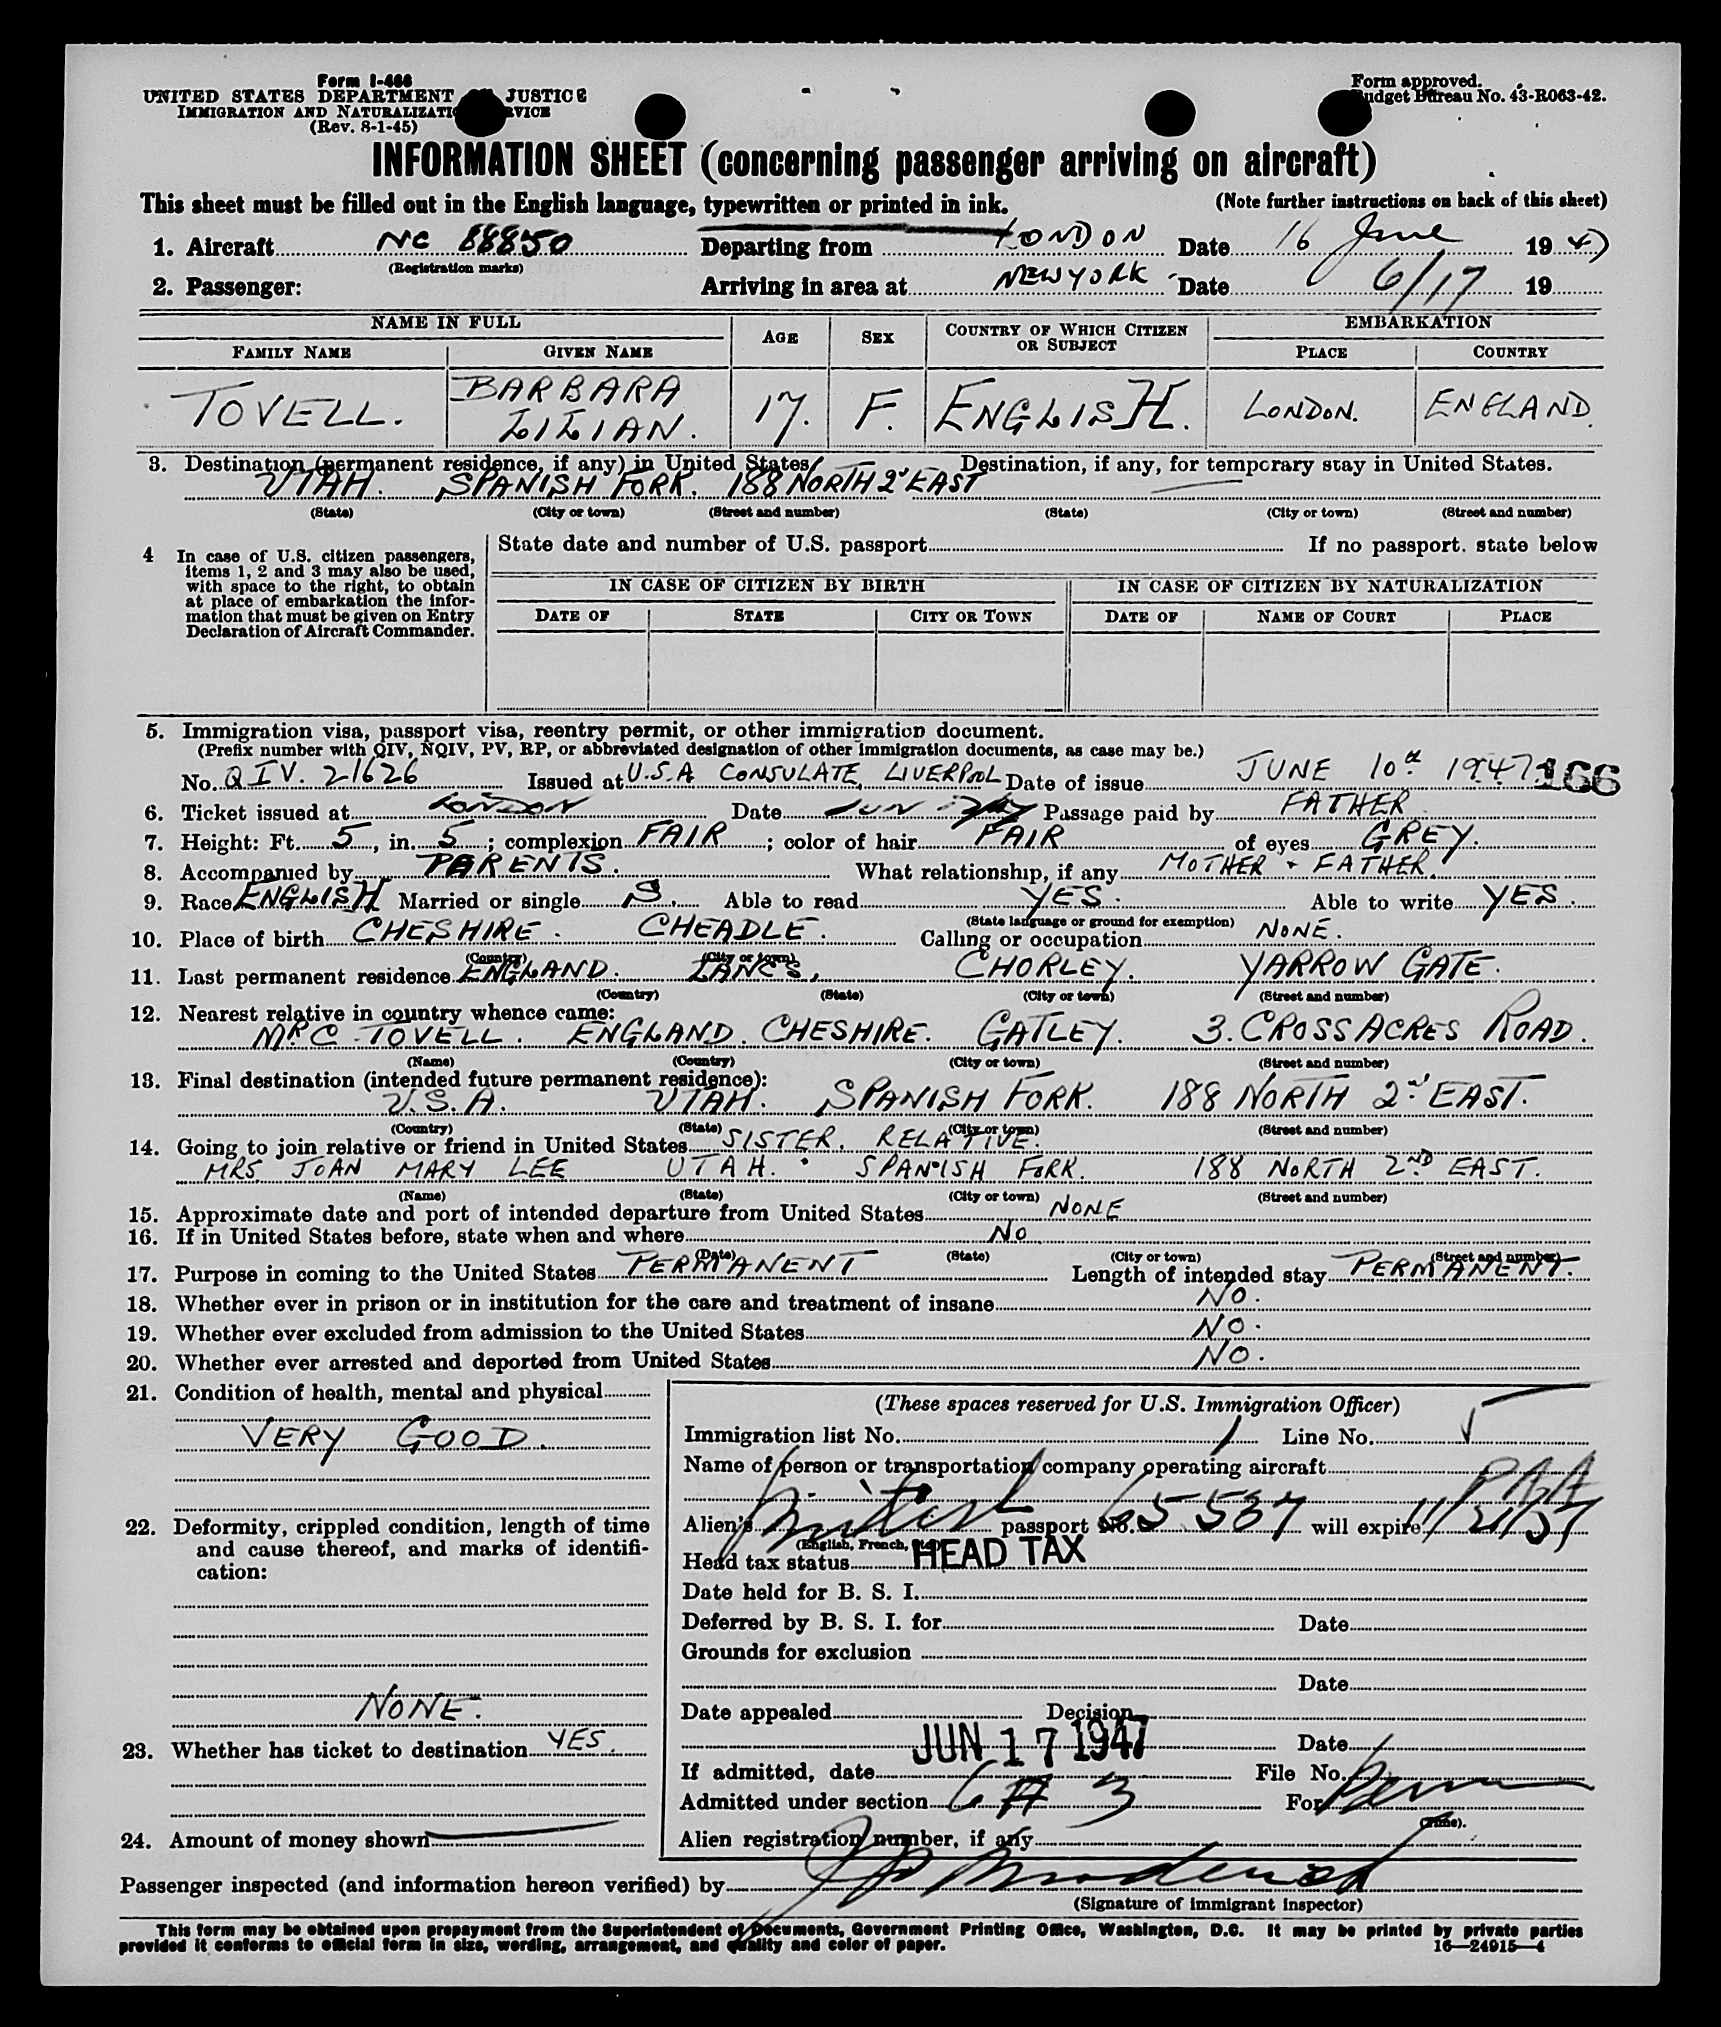 Form I-466
UNITED STATES DEPARTMENT JUSTICE
IMMIGRATION AND NATURALIZATION SERVICE
(Rev. 8-1-45)
Form approved.
Budget Bureau No. 43-R063-42.
INFORMATION SHEET (concerning passenger arriving on aircraft)
This sheet must be filled out in the English language, typewritten or printed in ink. (Note further instructions on back of this sheet)
1. Aircraft NC 88850 Departing from LONDON Date 16 June 1947
(Registration marks)
2. Passenger: Arriving in area at NEW YORK Date 6/17 19
NAME IN FULL AGE SEX COUNTRY OF WHICH CITIZEN OR SUBJECT EMBARKATION
FAMILY NAME GIVEN NAME PLACE COUNTRY
TOVELL. BARBARA LILIAN. 17. F. ENGLISH. LONDON. ENGLAND.
3. Destination (permanent residence, if any) in United States Destination, if any, for temporary stay in United States.
UTAH. SPANISH FORK. 188 NORTH 2d EAST
(State) (City or town) (Street and number) (State) (City or town) (Street and number)
4 In case of U.S. citizen passengers, items 1, 2 and 3 may also be used, with space to the right, to obtain at place of embarkation the information that must be given on Entry Declaration of Aircraft Commander.
State date and number of U.S. passport If no passport. state below
IN CASE OF CITIZEN BY BIRTH IN CASE OF CITIZEN BY NATURALIZATION
DATE OF STATE CITY OR TOWN DATE OF NAME OF COURT PLACE
5. Immigration visa, passport visa, reentry permit, or other immigration document.
(Prefix number with QIV, NQIV, PV, RP, or abbreviated designation of other immigration documents, as case may be.)
No. QIV. 21626 Issued at U.S.A. CONSULATE, LIVERPOOL Date of issue JUNE 10th 1947 166
6. Ticket issued at London Date JUN Passage paid by FATHER
7. Height: Ft. 5, in. 5; complexion FAIR; color of hair FAIR of eyes GREY.
8. Accompanied by PARENTS. What relationship, if any MOTHER + FATHER.
9. Race ENGLISH Married or single S. Able to read YES. Able to write YES.
(State language or ground for exemption)
10. Place of birth CHESHIRE. CHEADLE. Calling or occupation NONE.
(Country) (City or town)
11. Last permanent residence ENGLAND. LANCS, CHORLEY. YARROW GATE.
(Country) (State) (City or town) (Street and number)
12. Nearest relative in country whence came:
MR C TOVELL. ENGLAND. CHESHIRE. GATLEY. 3. CROSS ACRES ROAD.
(Name) (Country) (City or town) (Street and number)
13. Final destination (intended future permanent residence):
U.S.A. UTAH. SPANISH FORK. 188 NORTH 2nd EAST.
(Country) (State) (City or town) (Street and number)
14. Going to join relative or friend in United States SISTER. RELATIVE.
MRS JOAN MARY LEE UTAH. SPANISH FORK. 188 NORTH 2ND EAST.
(Name) (State) (City or town) (Street and number)
15. Approximate date and port of intended departure from United States NONE
16. If in United States before, state when and where No
(Date) (State) (City or town) (Street and number)
17. Purpose in coming to the United States PERMANENT Length of intended stay PERMANENT.
18. Whether ever in prison or in institution for the care and treatment of insane NO.
19. Whether ever excluded from admission to the United States NO.
20. Whether ever arrested and deported from United States NO.
21. Condition of health, mental and physical
VERY GOOD.
22. Deformity, crippled condition, length of time and cause thereof, and marks of identification:
NONE.
23. Whether has ticket to destination YES.
24. Amount of money shown
(These spaces reserved for U.S. Immigration Officer)
Immigration list No. 1 Line No. 5
Name of person or transportation company operating aircraft PAA
Alien's British passport No. 65587 will expire 11/21/57
(English, French, etc.)
Head tax status HEAD TAX
Date held for B. S. I.
Deferred by B. S. I. for Date
Grounds for exclusion
Date
Date appealed Decision
Date
If admitted, date JUN 17 1947 File No.
Admitted under section 6 A 3 For Perm
(Time).
Alien registration number, if any
Passenger inspected (and information hereon verified) by
(Signature of immigrant inspector)
This form may be obtained upon prepayment from the Superintendent of Documents, Government Printing Office, Washington, D.C. It may be printed by private parties
provided it conforms to official form in size, wording, arrangement, and quality and color of paper. 16—24915—4